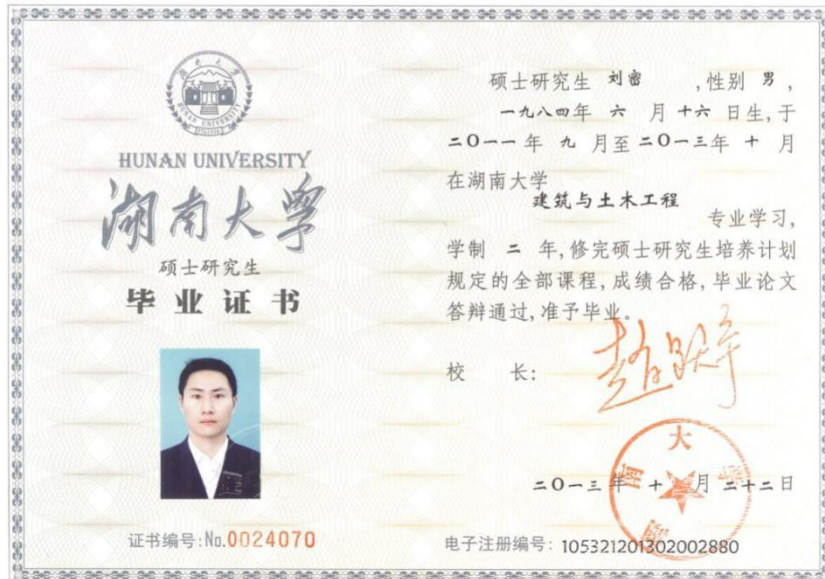 湖南大學
HUNAN UNIVERSITY
HUNAN UNIVERSITY
湖南大學
硕士研究生
毕业证书
证书编号:No.0024070
硕士研究生 刘密 ,性别 男 ,
一九八四年 六 月 十六 日生,于
二〇一一 年 九 月至二〇一三年 十 月
在湖南大学
建筑与土木工程
专业学习,
学制 二 年,修完硕士研究生培养计划
规定的全部课程,成绩合格,毕业论文
答辩通过,准予毕业。
校 长:
赵跃宇
二〇一三 年 十 月 二十二日
湖南大学
电子注册编号: 105321201302002880